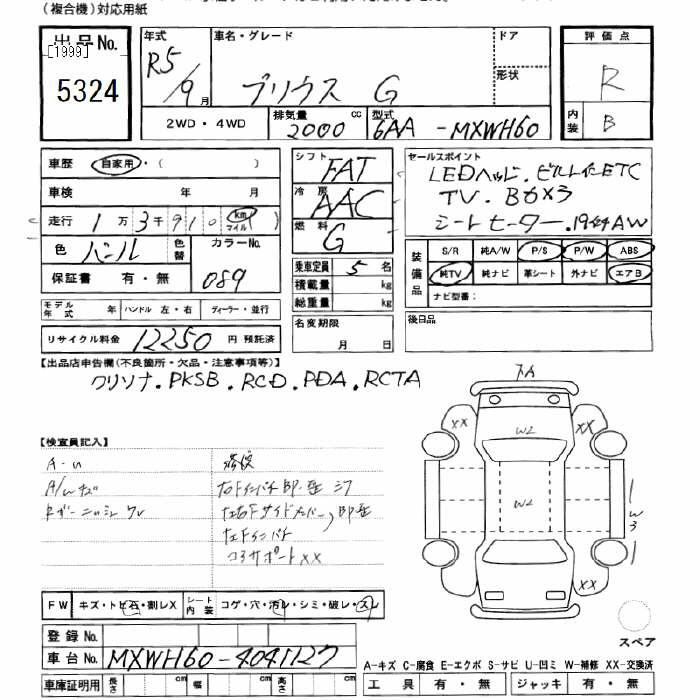 (複合機)対応用紙
出品No.
[1999]
5324
年式 R5/9月
車名・グレード プリウス G
ドア
形状
2WD・4WD
排気量 2000 cc
型式 6AA-MXWH60
評価点 R
内装 B
車歴 自家用・( )
車検 年 月
走行 1万3千910 km マイル
色 パール
色替
カラーNo. 089
保証書 有・無
モデル年式 年 ハンドル 左・右 ディーラー・並行
リサイクル料金 12250 円 預託済
シフト FAT
冷房 AAC
燃料 G
乗車定員 5 名
積載量 kg
総重量 kg
名変期限
月 日
セールスポイント
LEDヘッド.ビルトインETC
TV.Bカメラ
シートヒーター.19インチAW
装備品
S/R 純A/W P/S P/W ABS
純TV 純ナビ 革シート 外ナビ エアB
ナビ型番:
後日品
【出品店申告欄(不良箇所・欠品・注意事項等)】
クリソナ.PKSB.RCD.PDA.RCTA
【検査員記入】
修復
コアサポートXX
FW キズ・トビ石・割レX
シート内装 コゲ・穴・汚レ・シミ・破レ・スレ
登録No.
車台No. MXWH60-4041127
車庫証明用 長さ cm 幅 cm 高さ cm
XX
XX
W2
W2
W3
XX
スペア
A-キズ C-腐食 E-エクボ S-サビ U-凹ミ W-補修 XX-交換済
工具 有・無 ジャッキ 有・無